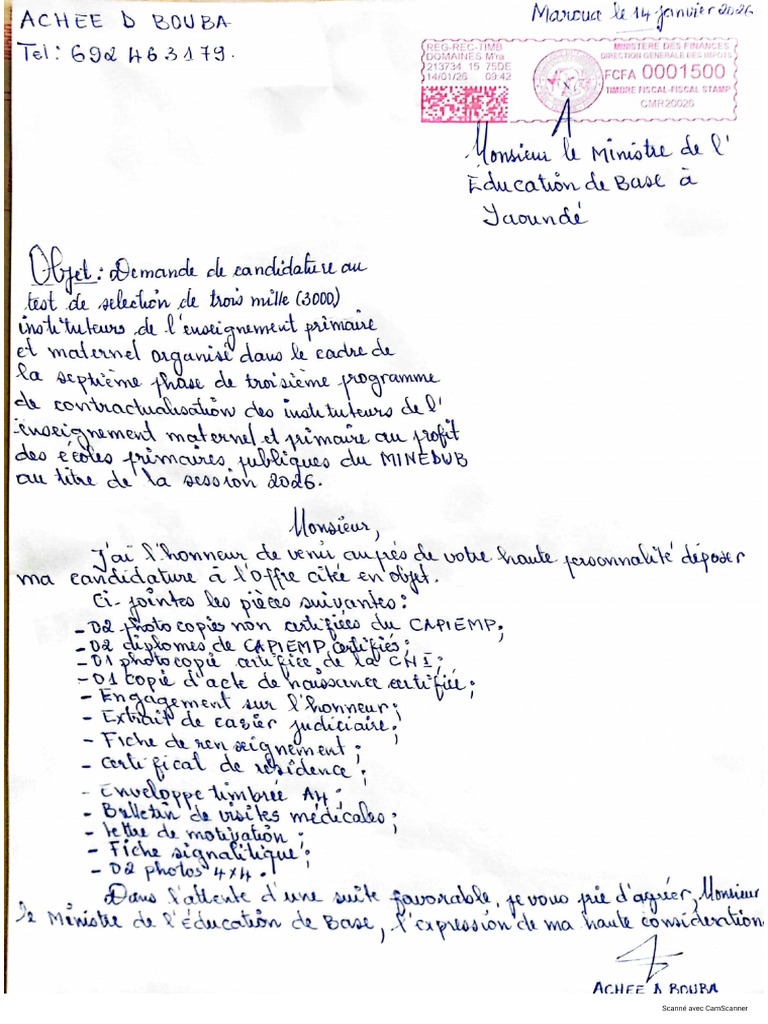 ACHEE D BOUBA
Tel: 692 463179.
Maroua le 14 janvier 2026
REG-REC-TIMB
DOMAINES M'ra
213734 15 75DE
14/01/26 09:42
MINISTERE DES FINANCES
DIRECTION GENERALE DES IMPOTS
FCFA 0001500
TIMBRE FISCAL-FISCAL STAMP
CMR20026
A
Monsieur le Ministre de l'
Éducation de Base à
Yaoundé
Objet: Demande de candidature au
test de selection de trois mille (3000)
instituteurs de l'enseignement primaire
et maternel organisé dans le cadre de
la septième phase de troisième programme
de contractualisation des instituteurs de l'
enseignement maternel et primaire au profit
des écoles primaires publiques du MINEDUB
au titre de la session 2026.
Monsieur,
J'ai l'honneur de venir auprès de votre haute personnalité déposer
ma candidature à l'offre citée en objet.
Ci-jointes les pièces suivantes:
- 02 photocopies non certifiées du CAPIEMP;
- 02 diplomes de CAPIEMP certifiés;
- 01 photocopie certifiée de la CNI;
- 01 copie d'acte de naissance certifiée;
- Engagement sur l'honneur;
- Extrait de casier judiciaire;
- Fiche de renseignement;
- Certifical de residence;
- Enveloppe timbrée A4;
- Bulletin de visites médicales;
- lettre de motivation;
- Fiche signalitique;
- 02 photos 4x4.
Dans l'attente d'une suite favorable, je vous prie d'agréer, Monsieur
le Ministre de l'Éducation de Base, l'expression de ma haute consideration.
ACHEE D BOUBA
Scanné avec CamScanner